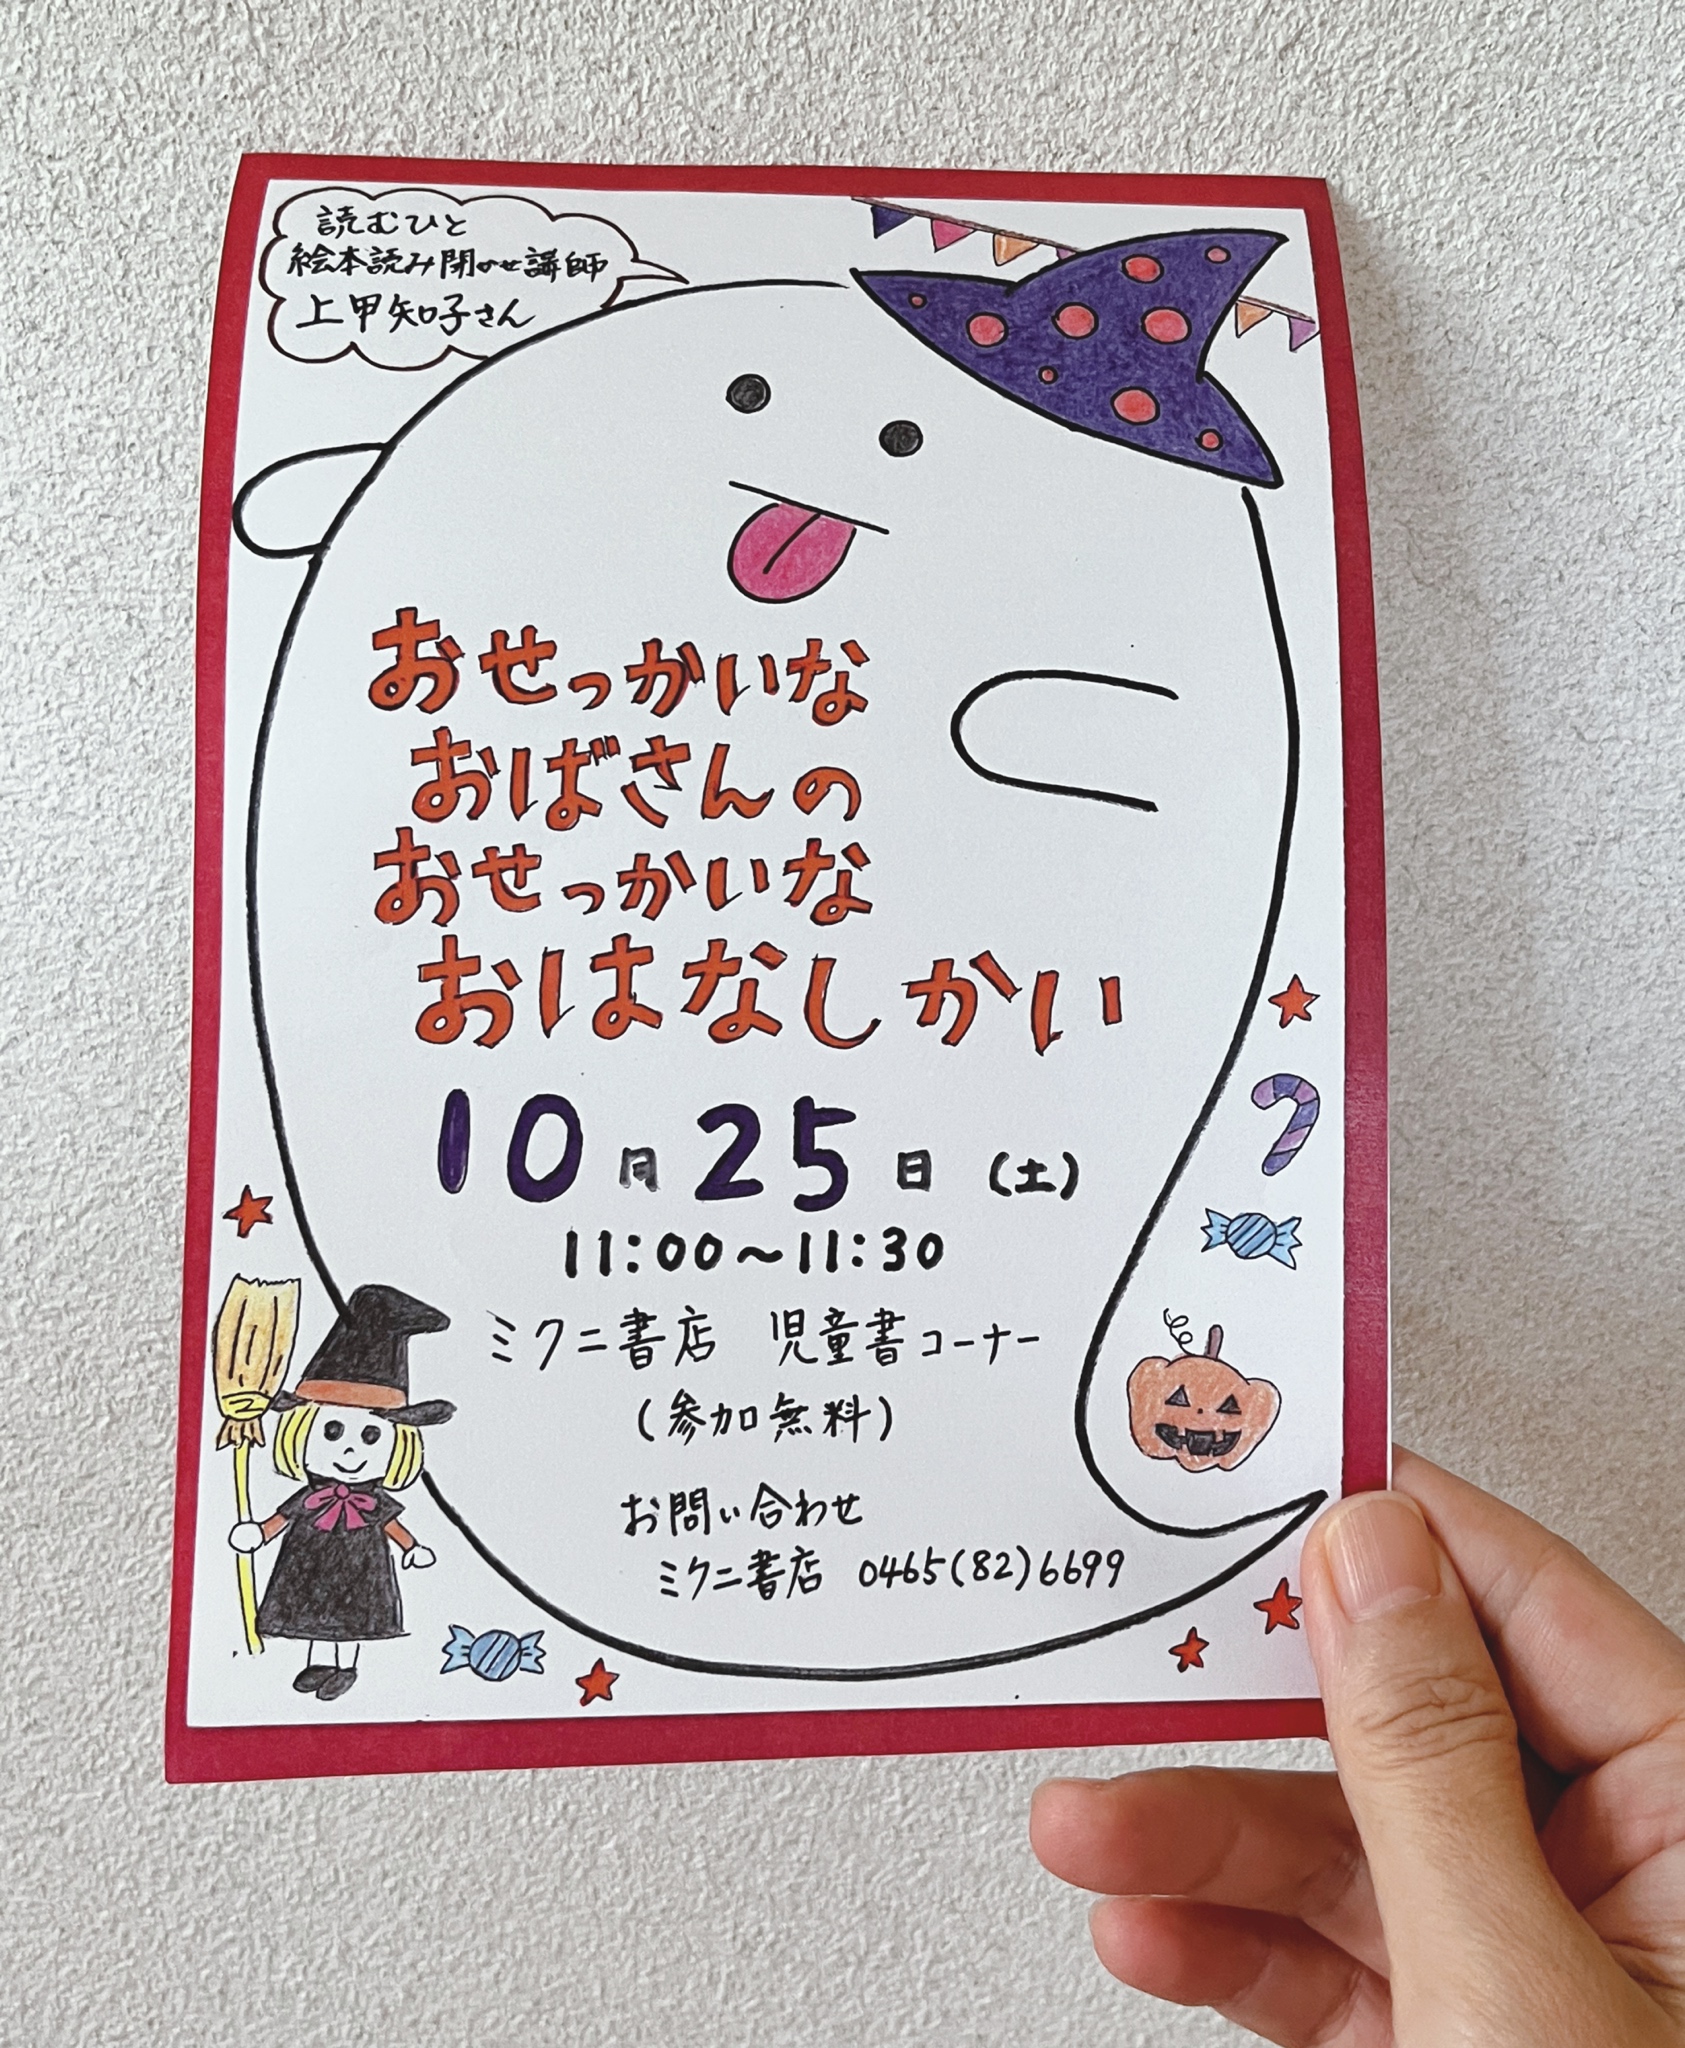 読むひと
絵本読み聞かせ講師
上甲知子さん
おせっかいな
おばさんの
おせっかいな
おはなしかい
10月25日(土)
11:00～11:30
ミクニ書店 児童書コーナー
(参加無料)
お問い合わせ
ミクニ書店 0465(82)6699